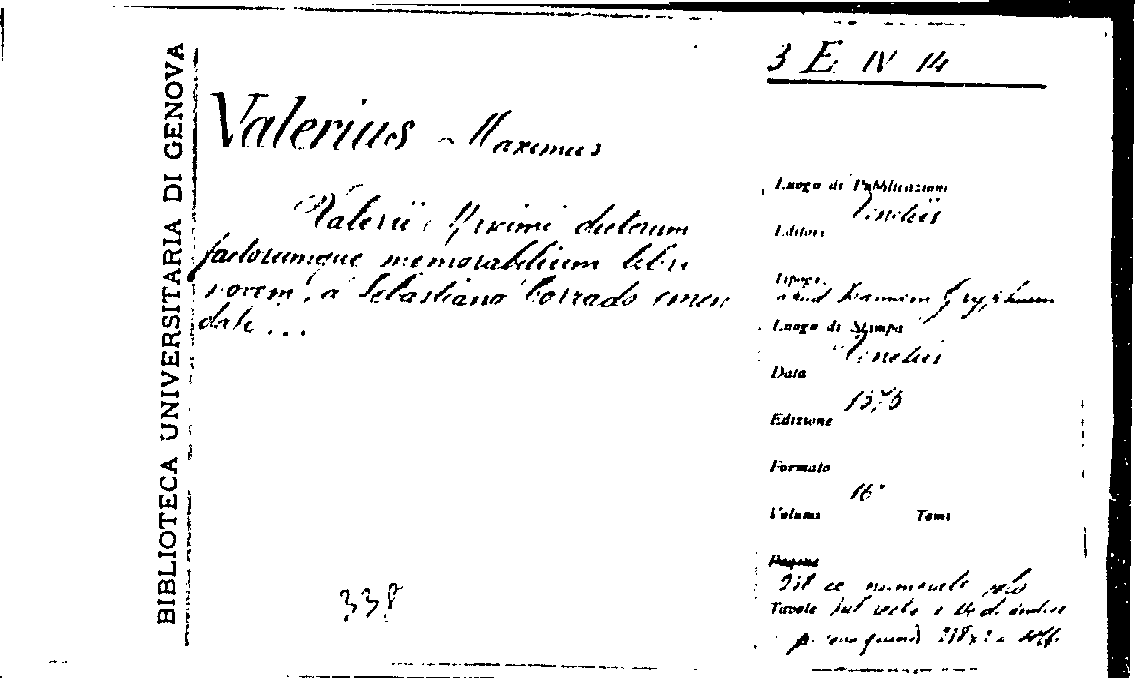 BIBLIOTECA UNIVERSITARIA DI GENOVA
3 E IV 14
Valerius Maximus
Valerii Maximi dictorum
factorumque memorabilium libri
novem, a Sebastiano Corrado emen
dati ...
Luogo di Pubblicazione
Venetiis
Editori
Tipogr.
apud Joannem Gryphium
Luogo di Stampa
Venetiis
Data
1573
Edizione
Formato
16°
Volumi Tomi
Pagine
218 cc numerate solo
Tavole sul recto e di indice
338